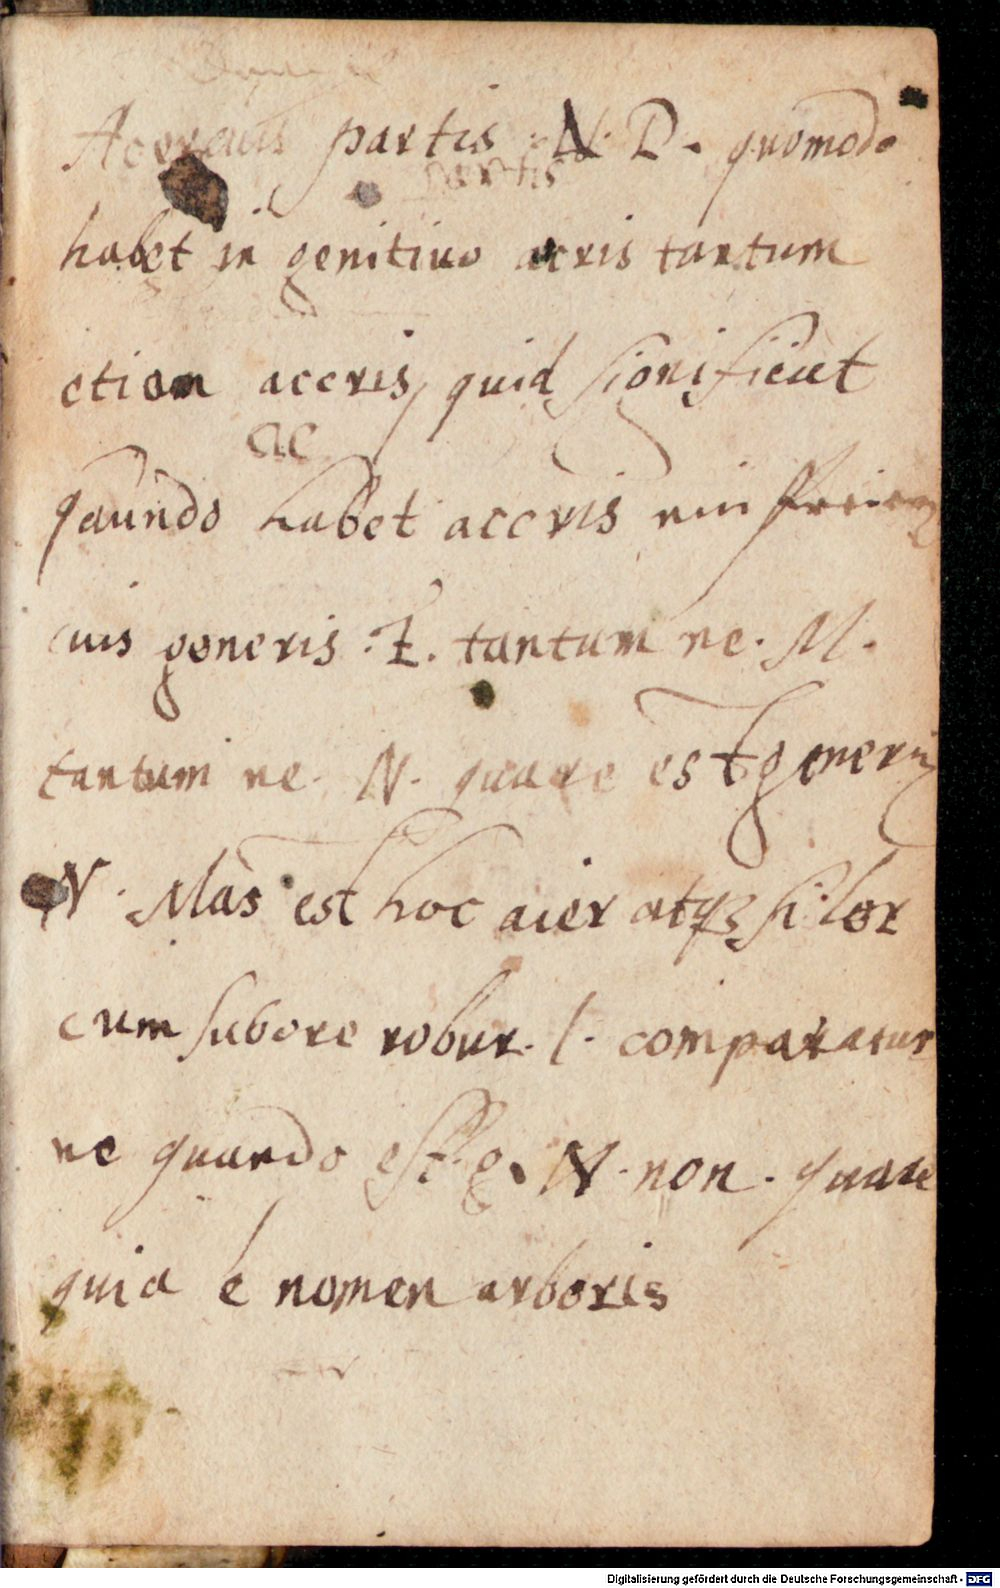 Acer cuis partis N. D. quomodo
partis
habet in genitiuo acris tantum
etiam aceris, quid significat
ac
qaundo habet aceris ein
cuis generis .F. tantum ne. M.
tantum ne. N. quare est generis
N. Mas est hoc acer atq3 siler
cum subere robur. l. comparatur
ne quando est g. N. non. quare
quia e nomen arboris
Digitalisierung gefördert durch die Deutsche Forschungsgemeinschaft - DFG